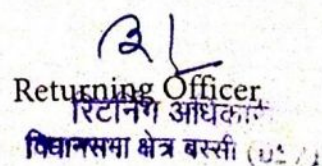 Returning Officer
रिटर्निंग अधिकारी
विधानसभा क्षेत्र बस्सी